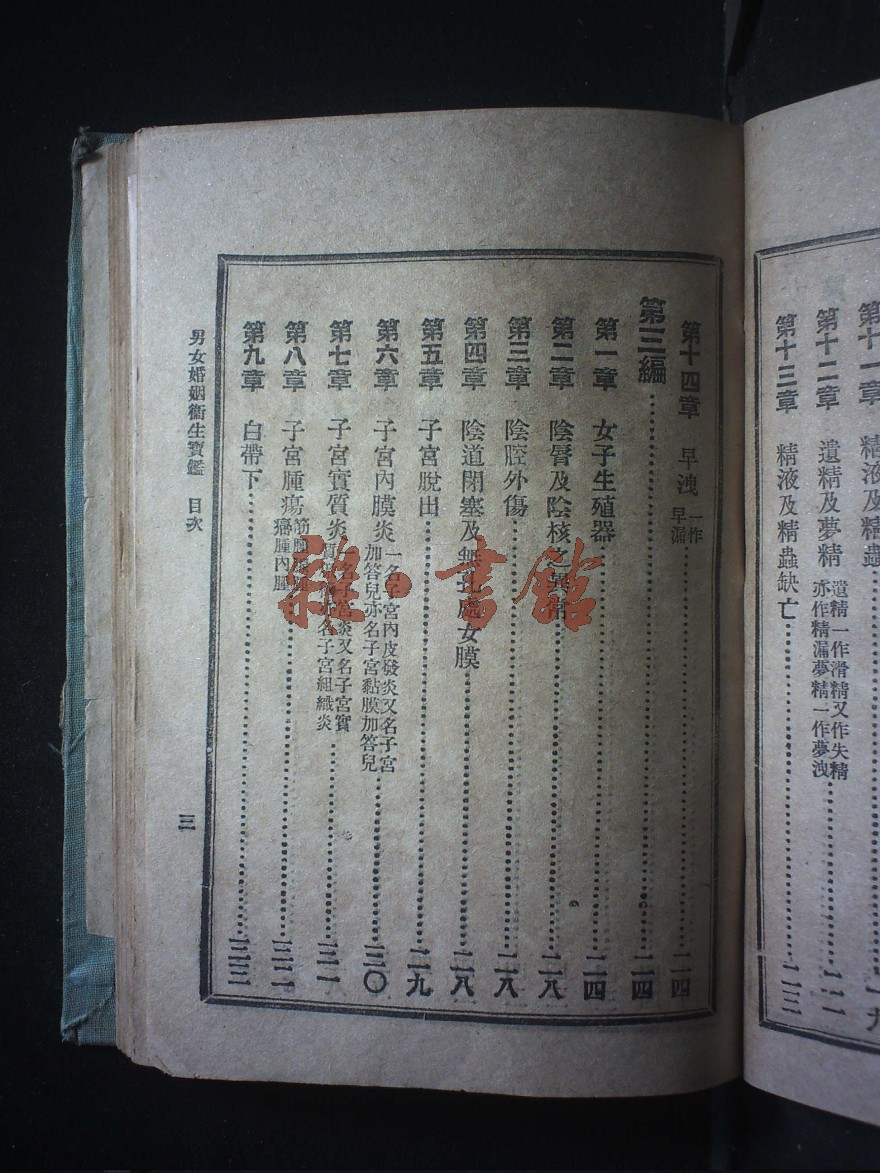 第十一章 精液及精蟲
第十二章 遺精及夢精 遺精一作滑精又作失精亦作精漏夢精一作夢洩
第十三章 精液及精蟲缺亡 二三
第十四章 早洩 一作早漏 二四
第三編 二四
第一章 女子生殖器 二四
第二章 陰脣及陰核之異常 二八
第三章 陰腔外傷 二八
第四章 陰道閉塞及無孔處女膜 二八
第五章 子宮脫出 二九
第六章 子宮內膜炎 一名子宮內皮發炎又名子宮加答兒亦名子宮黏膜加答兒 三〇
第七章 子宮實質炎 一名子宮炎又名子宮實質 名子宮組織炎 三一
第八章 子宮腫瘍 癌腫內腫 三二
第九章 白帶下 三三
男女婚姻衞生寶鑑 目次
三
雜·書館